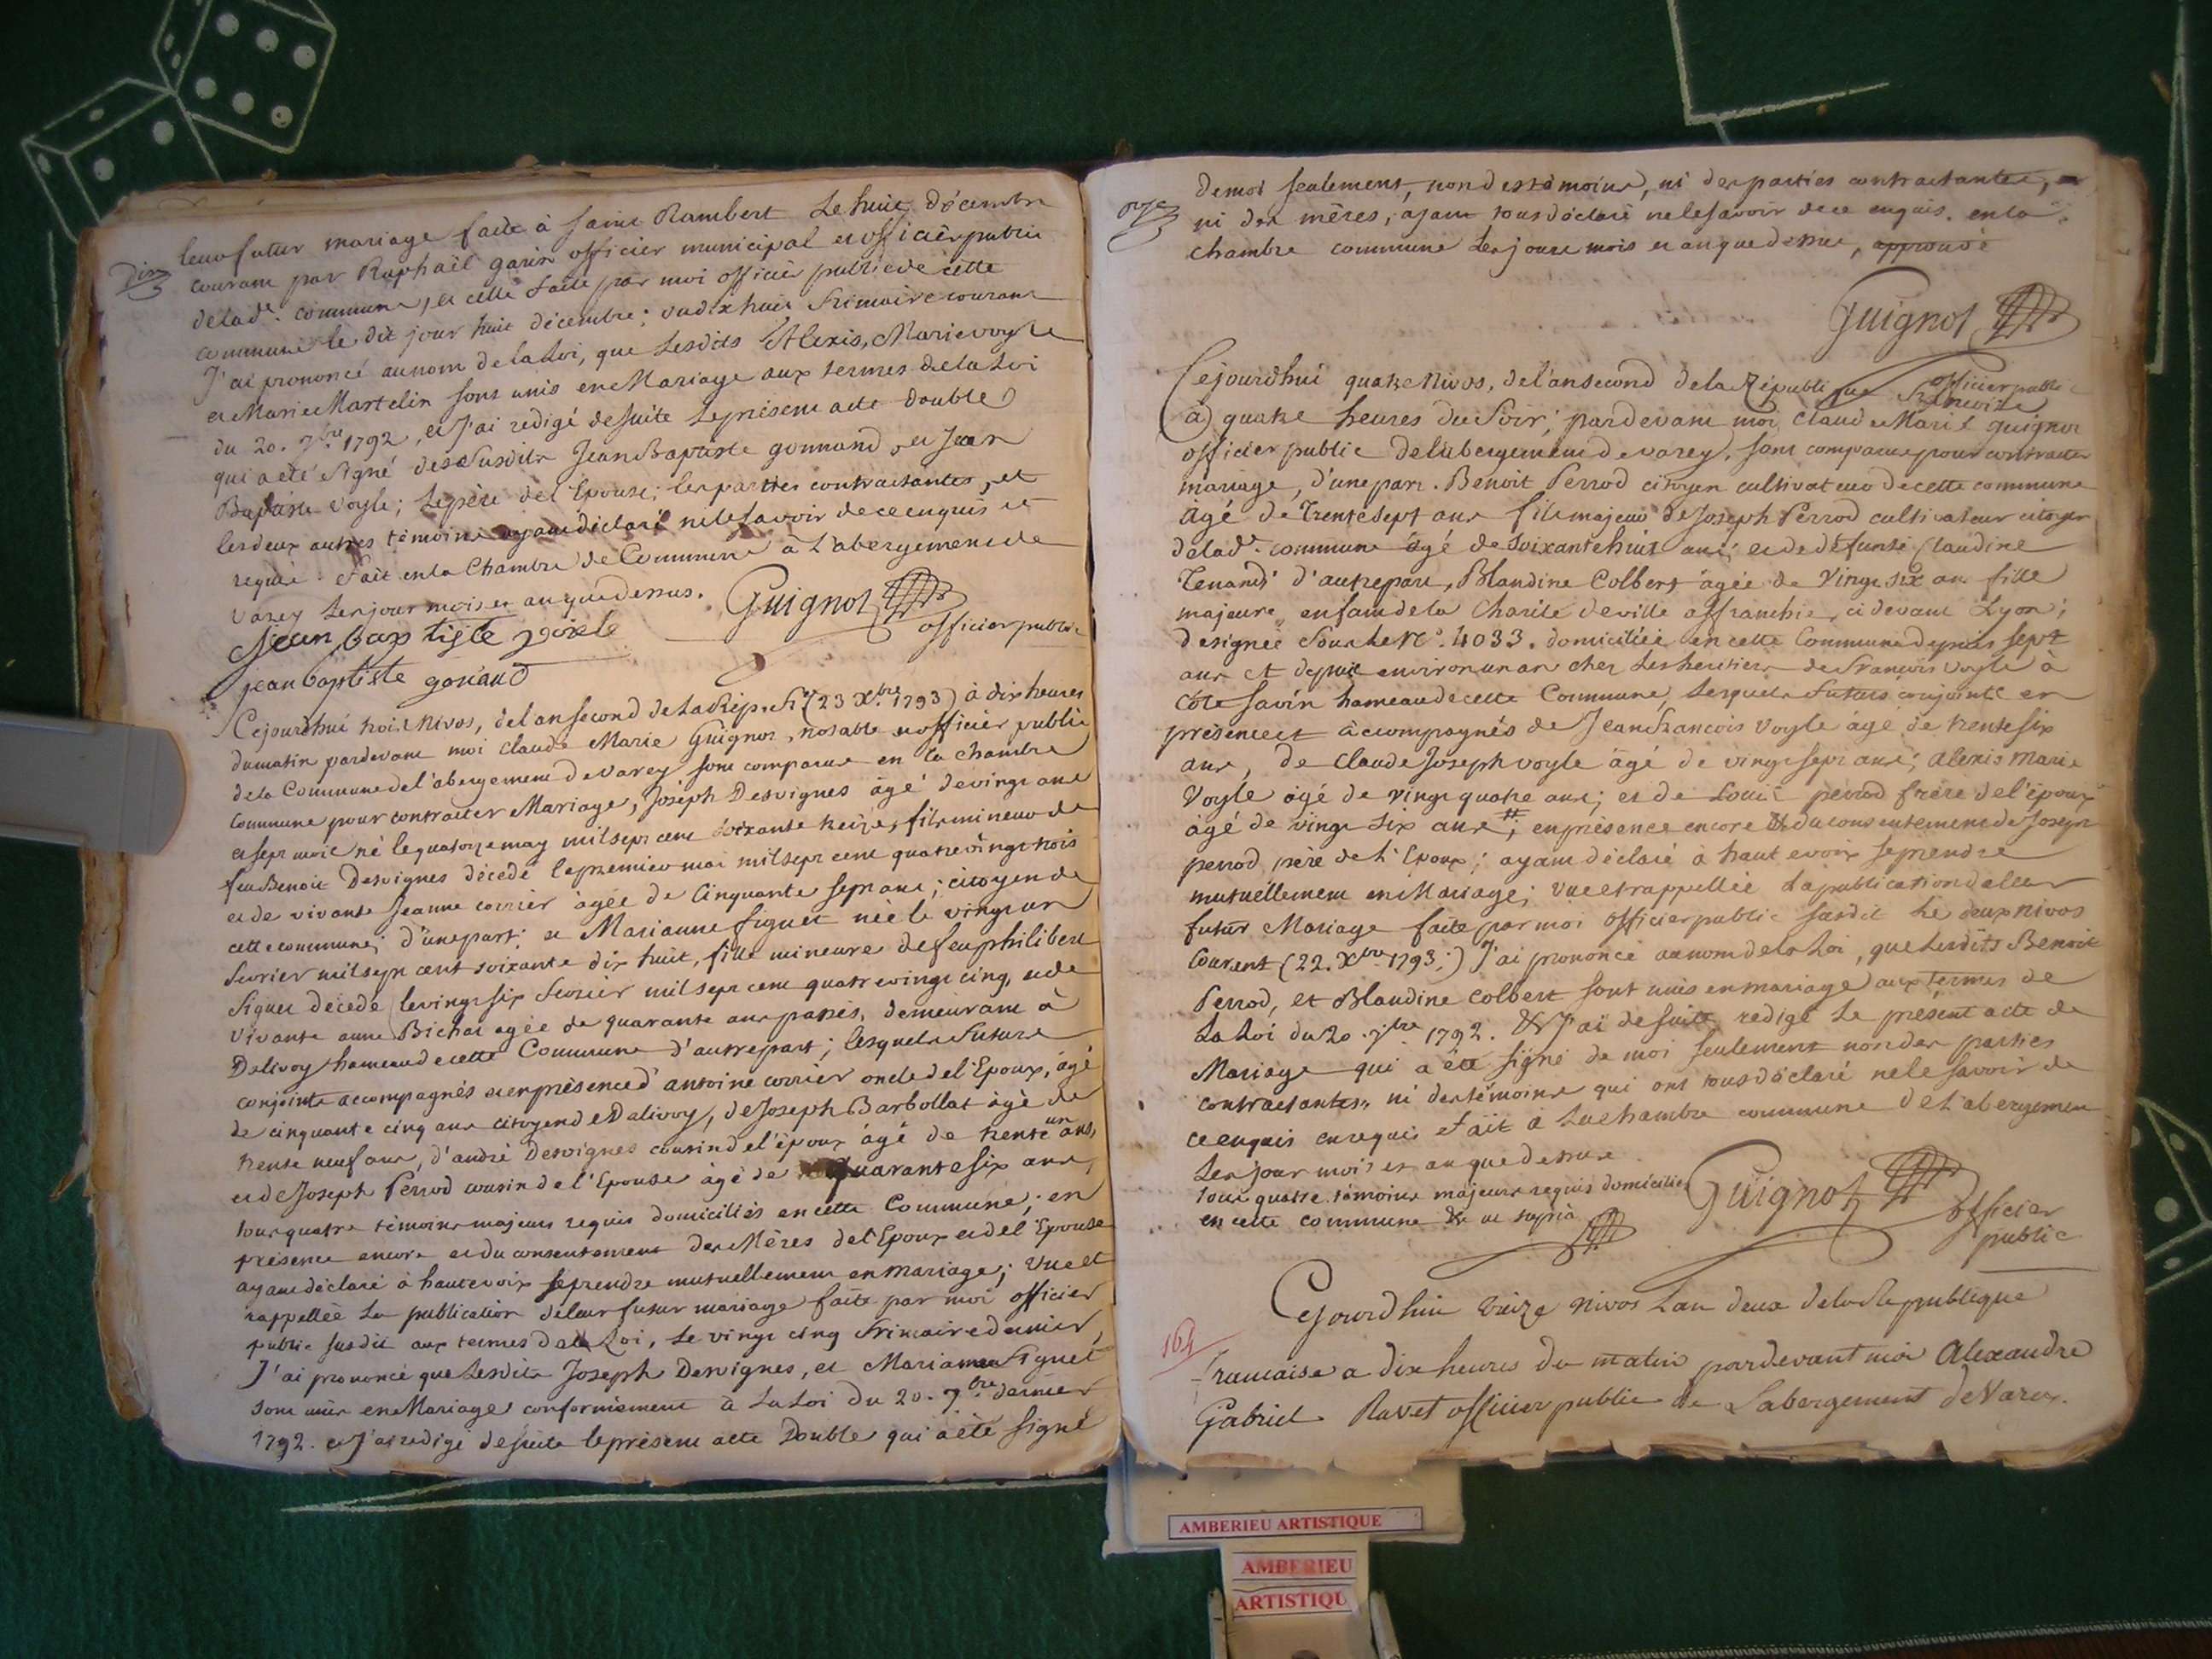 dix
leur futur mariage faite à saint Rambert Le huit décembre
courant par Raphaël garin officier municipal et officier public
de lad.e commune, et celle faite par moi officier public de cette
commune le dit jour huit décembre; ou dix huit frimaire courant
J'ai prononcé au nom de la Loi, que Lesdits Alexis, Marie voyle
et Marie Martelin sont unis en Mariage aux termes de la Loi
du 20. 7.bre 1792, et J'ai redigé de suite Le présent acte double
qui a été signé des susdits Jean Baptiste gonnand, et Jean
Baptiste Voyle; Le père de l'Epouse; les parties contractantes, et
les deux autres témoins ayant déclaré ne le savoir de ce enquis et
requis. fait en la Chambre de Commune à L'abergement de
varey Les jour mois et an que dessus. Guignot
officier public
jean baptiste voixle
jean baptiste gonand
Cejourdhui trois Nivos, de l'an second de la Rép. fr. (23 X.bre 1793) à dix heures
du matin pardevant moi Claude Marie Guignot, notable et officier public
de la Commune de l'abergement de varey sont comparus en la chambre
commune pour contracter Mariage, Joseph Desvignes âgé de vingt ans
et sept mois né le quatorze may mil sept cent soixante treize, fils mineur de
feu Benoit Desvignes décédé le premier mai mil sept cent quatre vingt trois
et de vivante Jeanne corrier âgée de Cinquante sept ans; citoyen de
cette commune; d'une part; et Marianne figuet née le vingt un
fevrier mil sept cent soixante dix huit, fille mineure de feu philibert
figuet décédé le vingt six fevrier mil sept cent quatre vingt cinq, et de
vivante anne Bichat agée de quarante ans passés, demeurant à
Dalivoy hameau de cette Commune d'autre part; lesquels futurs
conjoints accompagnés et en présence d'antoine corrier oncle de l'Epoux, âgé
de cinquante cinq ans citoyen de Dalivoy, de Joseph Barbollat âgé de
trente neuf ans, d'andré Desvignes cousin de l'époux âgé de trente un ans,
et de Joseph Perrod cousin de l'Epouse âgé de quarante six ans,
tous quatre témoins majeurs requis domiciliés en cette Commune; en
présence encore et du consentement des Mères de l'Epoux et de l'Epouse
ayant déclaré à haute voix se prendre mutuellement en mariage; Vue et
rappellée La publication de leur futur mariage faite par moi officier
public susdit aux termes de la Loi, Le vingt cinq frimaire dernier,
J'ai prononcé que Lesdits Joseph Desvignes, et Marianne figuet
sont unis en Mariage conformément à La Loi du 20. 7.bre dernier
1792. et J'ai redigé de suite le présent acte Double qui a été signé
onze
de moi seulement, non des témoins, ni des parties contractantes,
ni des mères, ayant tous déclaré ne le savoir de ce enquis. en la
chambre commune Les jours mois et an que dessus, approuvé
Guignot
officier public
Cejourdhui quatre Nivos, de l'an second de la République francoise
à quatre heures du soir; pardevant moi Claude Marie Guignot
officier public de l'abergement de varey, sont comparus pour contracter
mariage, d'une part. Benoit Perrod citoyen cultivateur de cette commune
Agé de Trente sept ans fils majeur de Joseph Perrod cultivateur citoyen
de lad.e commune âgé de soixante huit ans; et de défunte Claudine
Tenand; d'autre part, Blandine Colbert âgée de Vingt six ans fille
majeure, enfant de la Charité de ville affranchie, ci devant Lyon;
designée sous Le N.o 4033. domiciliée en cette Commune depuis sept
ans et depuis environ un an chez Les heritiers de françois voyle à
côte savin hameau de cette Commune, Lesquels futurs conjoints en
présence et accompagnés de Jean francois Voyle âgé de trente six
ans, de Claude Joseph voyle âgé de vingt sept ans; alexis marie
Voyle âgé de vingt quatre ans; et de Louis perrod frère de l'époux
âgé de vingt six ans #; en présence encore et du consentement de Joseph
perrod père de l'Epoux; ayant déclaré à haute voix se prendre
mutuellement en Mariage; Vue et rappellée La publication de leur
futur Mariage faite par moi officier public susdit Le deux nivos
Courent (22. Xbre 1793;) J'ai prononcé au nom de la Loi, que Lesdits Benoit
Perrod, et Blandine Colbert sont unis en mariage aux termes de
La Loi du 20. 7bre 1792. & J'ai de suite redigé Le présent acte de
Mariage qui a été signé de moi seulement non des parties
contractantes, ni des témoins qui ont tous déclaré ne le savoir de
ce enquis en requis fait à La chambre commune de L'abergement
Les jour mois et an que dessus
# tous quatre témoins majeurs requis domiciliés
en cette commune & ut suprà
Guignot
officier
public
164
Cejourdhui treize nivos Lan deux de la Republique
francaise a dix heures du matin pardevant moi Alexandre
Gabriel Ravet officier public de Labergement de Varey.
AMBERIEU ARTISTIQUE
AMBERIEU
ARTISTIQU